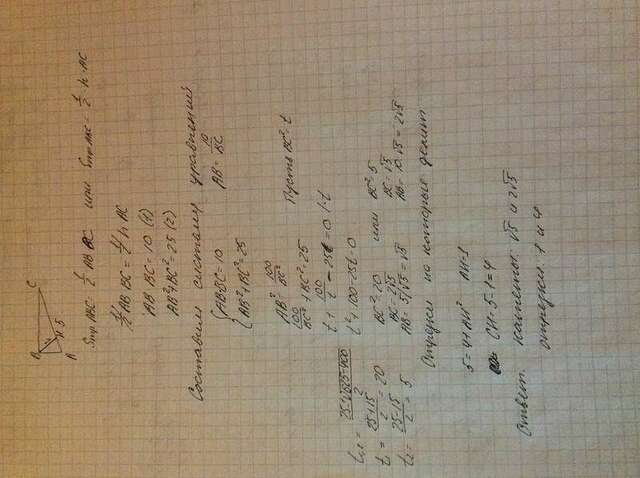 B C
A H 5
Sтр ABC = 1/2 AB·BC или Sтр ABC = 1/2 · h · AC
1/2 AB·BC = 1/2 h·AC
AB·BC = 10 (1)
AB²+BC² = 25 (2)
Составим систему уравнений
{ AB·BC = 10 AB = 10/BC
{ AB²+BC² = 25
AB² = 100/BC²
100/BC² + BC² = 25 Пусть BC² = t
t + 100/t - 25 = 0 |·t
t² + 100 - 25t = 0
t₁,₂ = (25±√(625-400))/2
t₁ = (25+15)/2 = 20
t₂ = (25-15)/2 = 5
BC² = 20 или BC² = 5
BC = 2√5 BC = √5
AB = 5/√5 = √5 AB = 10:√5 = 2√5
Отрезки на которые делит
5 = 4+AH² AH = 1
CH = 5-1 = 4
Ответ: катеты: √5 и 2√5
отрезки: 1 и 4